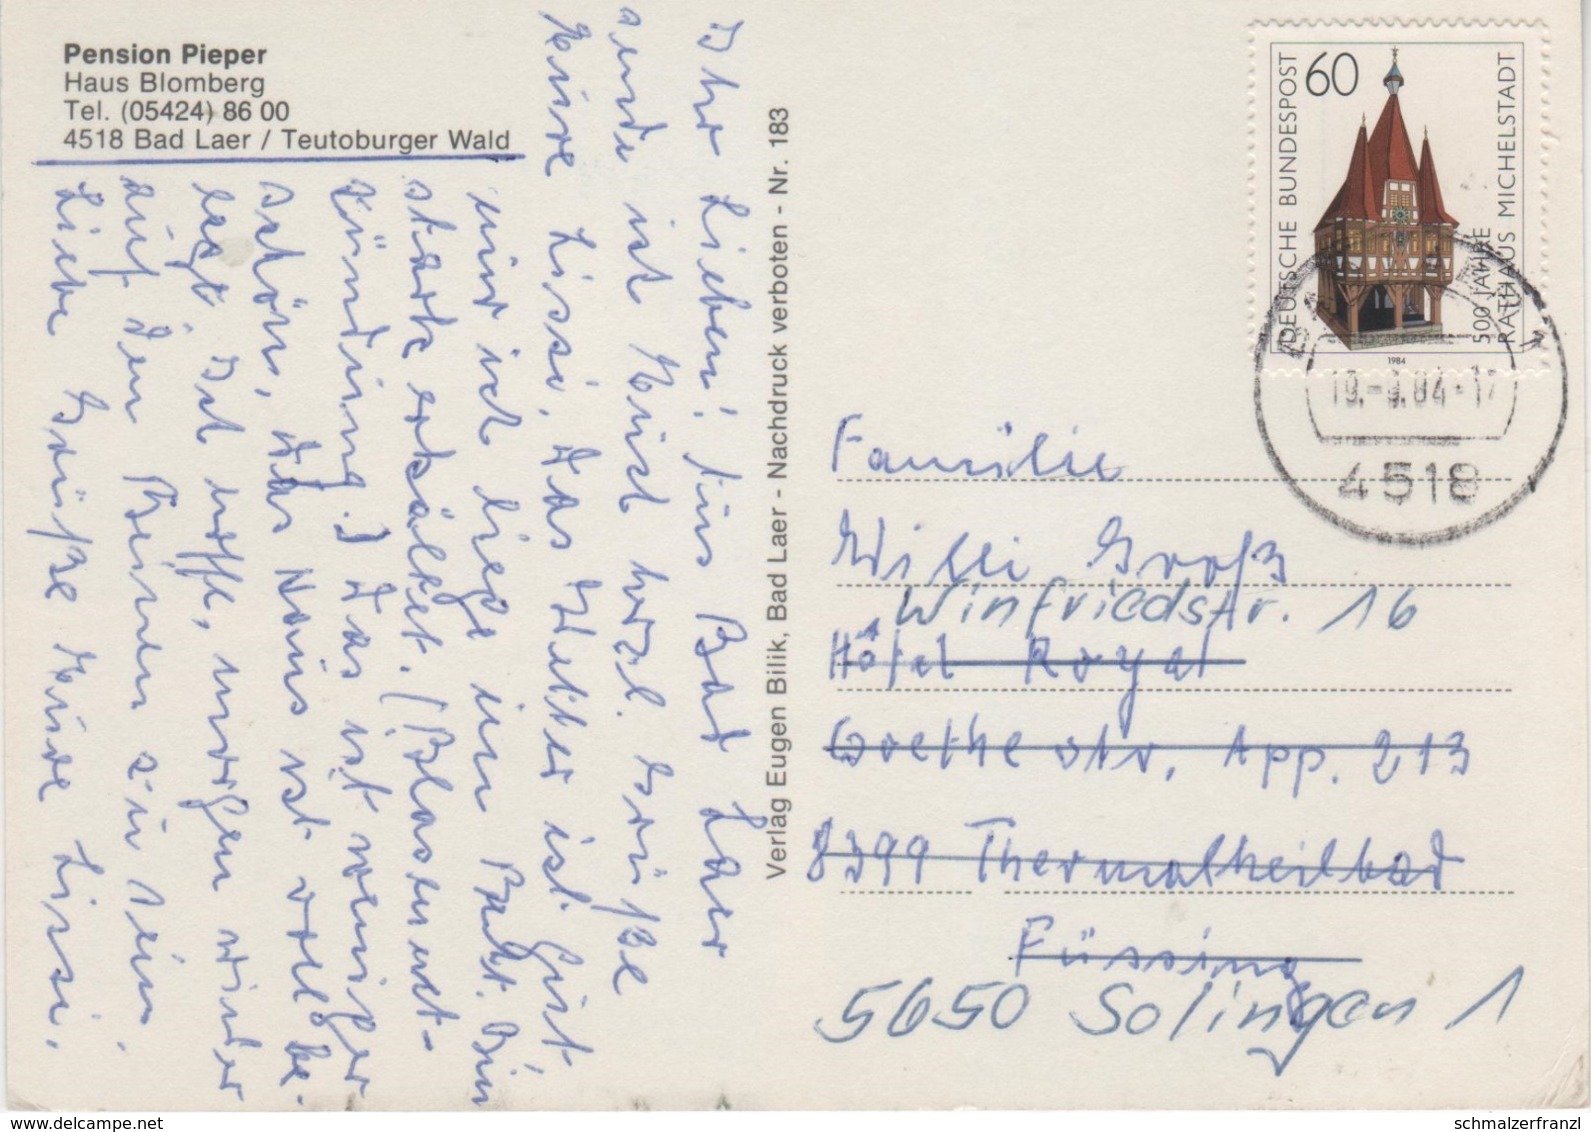 Pension Pieper
Haus Blomberg
Tel. (05424) 86 00
4518 Bad Laer / Teutoburger Wald
Ihr Lieben! Aus Bad Laer
sende ich Euch herzl. Grüße
Eure Lissi. Das Wetter ist
nur ich liege im Bett. Bin
stark erkältet. (Blasenent-
zündung.) Das ist weniger
schön, das Haus ist voll be-
legt. Ich hoffe, morgen wieder
auf den Beinen zu sein.
Liebe Grüße Eure Lissi.
Verlag Eugen Bilik, Bad Laer - Nachdruck verboten - Nr. 183
DEUTSCHE BUNDESPOST
60
500 JAHRE
RATHAUS MICHELSTADT
1984
4518
Familie
Willi Groß
Winfriedstr. 16
Hotel Royal
Goethe str. App. 213
8399 Thermalheilbad
Füssing
5650 Solingen 1
www.delcampe.net
schmalzerfranzl